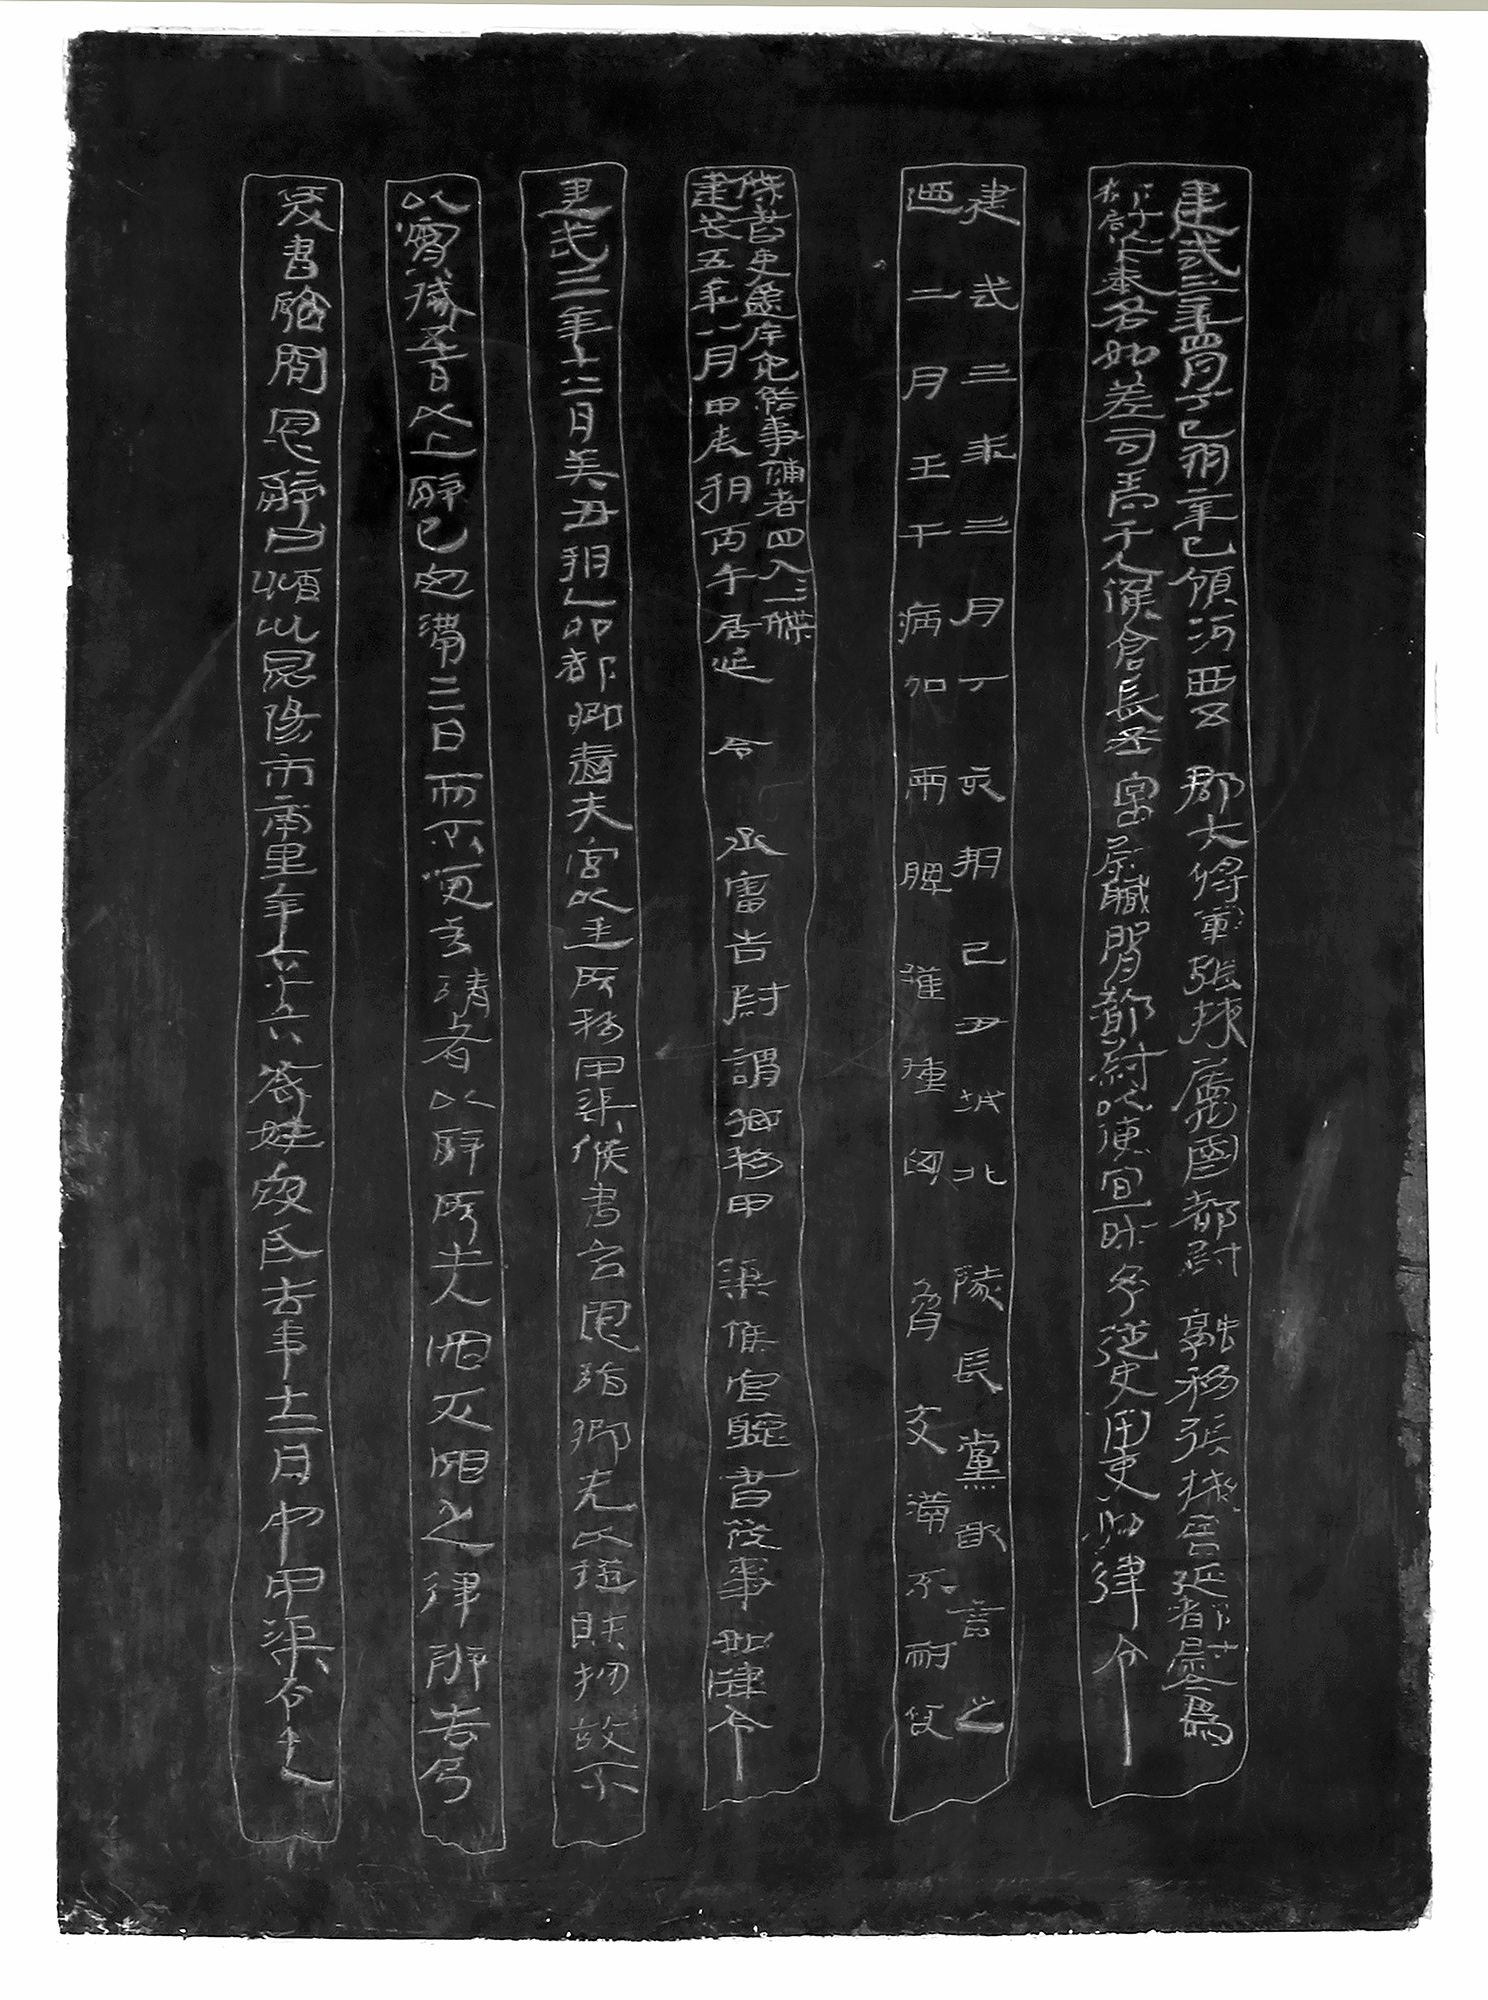 建武三年四月丁巳朔辛巳領河西五郡大將軍張掖屬國都尉融移張掖居延都尉今爲
奉各如差司馬千人候倉長丞塞尉職間都尉以便宜財予從史田吏如律令
建武三年三月丁亥朔己丑城北隧長黨敢言之
迺二月壬午病加兩脾雍種匈脅丈滿不耐食
牒書吏遷斥免給事補者四人人一牒
建武五年八月甲辰朔丙午居延令丞審告尉謂鄉移甲渠候官聽書從事如律令
建武三年十二月癸丑朔乙卯都鄉嗇夫宮以廷所移甲渠候書召恩詣鄉先以證財物故不
以實臧五百以上辭已定滿三日而不更言請者以辭所出入罪反罪之律辨告乃
爰書驗問恩辭曰潁川昆陽市南里年六十六歲姓寇氏去年十二月中甲渠令史